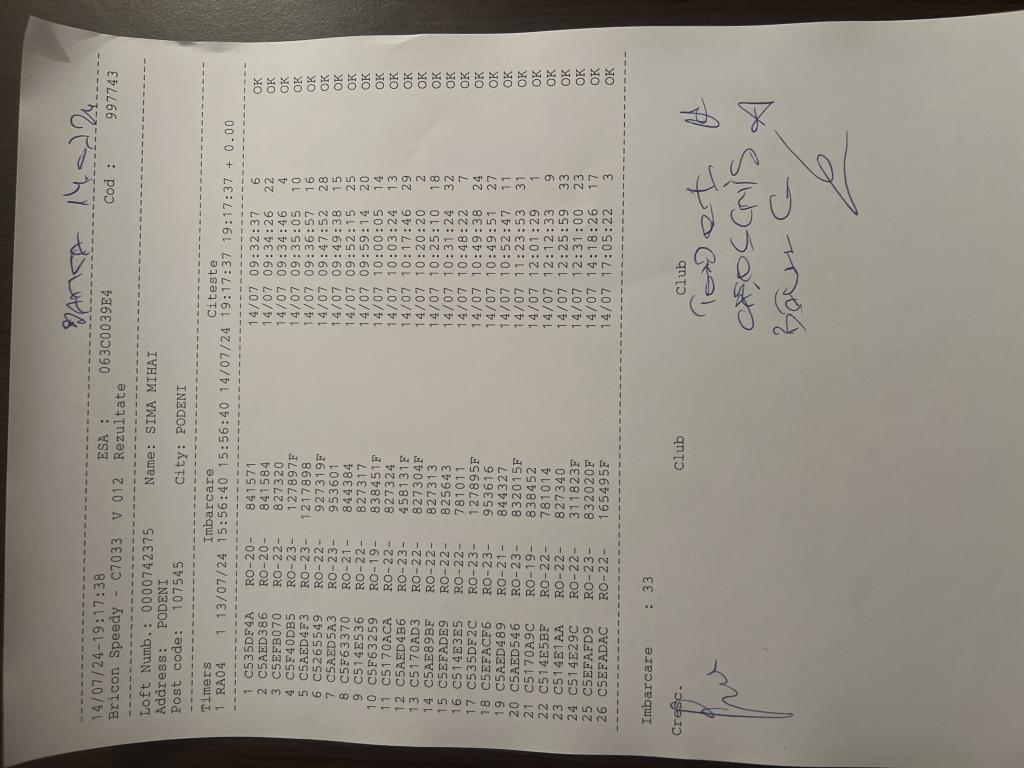 14/07/24-19:17:38 ESA : 063C0039E4 Cod : 997743
Bricon Speedy - C7033 V 012 Rezultate
Loft Numb.: 0000742375 Name: SIMA MIHAI
Address: PODENI
Post code: 107545 City: PODENI
Timers Imbarcare Citeste
1 RA04 1 13/07/24 15:56:40 15:56:40 14/07/24 19:17:37 19:17:37 + 0.00
1 C535DF4A RO-20- 841571 14/07 09:32:37 6 OK
2 C5AED386 RO-20- 841584 14/07 09:34:26 22 OK
3 C5EFB070 RO-22- 827320 14/07 09:34:46 4 OK
4 C5F40DB5 RO-23- 127897F 14/07 09:35:05 10 OK
5 C5AED4F3 RO-23- 1217898 14/07 09:36:57 16 OK
6 C5265549 RO-22- 927319F 14/07 09:47:52 28 OK
7 C5AED5A3 RO-23- 953601 14/07 09:49:38 15 OK
8 C5F63370 RO-21- 844384 14/07 09:52:15 25 OK
9 C514E536 RO-22- 827317 14/07 09:59:14 20 OK
10 C5F63259 RO-19- 838451F 14/07 10:00:05 14 OK
11 C5170ACA RO-22- 827324 14/07 10:03:24 13 OK
12 C5AED4B6 RO-23- 458131F 14/07 10:17:46 29 OK
13 C5170AD3 RO-22- 827304F 14/07 10:20:40 2 OK
14 C5AE89BF RO-22- 827313 14/07 10:25:10 18 OK
15 C5EFADE9 RO-22- 825643 14/07 10:31:24 32 OK
16 C514E3E5 RO-22- 781011 14/07 10:48:22 7 OK
17 C535DF2C RO-23- 127895F 14/07 10:49:38 24 OK
18 C5EFACF6 RO-23- 953616 14/07 10:49:51 27 OK
19 C5AED489 RO-21- 844327 14/07 10:52:47 11 OK
20 C5AED546 RO-23- 832015F 14/07 11:23:53 31 OK
21 C5170A9C RO-19- 838452 14/07 12:01:29 1 OK
22 C514E5BF RO-22- 781014 14/07 12:12:33 9 OK
23 C514E1AA RO-22- 827340 14/07 12:25:59 33 OK
24 C514E29C RO-22- 311823F 14/07 12:31:00 23 OK
25 C5EFAFD9 RO-23- 832020F 14/07 14:18:26 17 OK
26 C5EFADAC RO-22- 165495F 14/07 17:05:22 3 OK
Imbarcare : 33
Cresc. Club Club